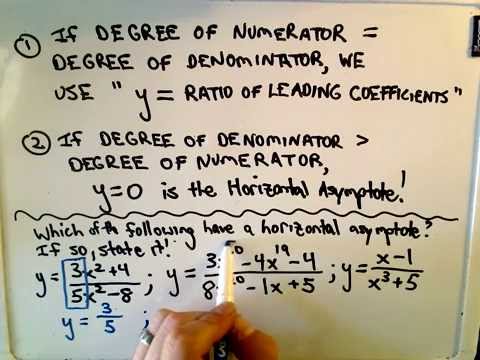 ① If DEGREE OF NUMERATOR =
DEGREE OF DENOMINATOR, WE
USE " y = RATIO OF LEADING COEFFICIENTS"
② IF DEGREE OF DENOMINATOR >
DEGREE OF NUMERATOR,
y=0 is the Horizontal Asymptote!
Which of the following have a horizontal asymptote?
If so, state it!
y = 3x²+4 / 5x²-8 ; y = 3 -4x¹⁹-4 / 8 -1x+5 ; y = x-1 / x³+5
y = 3/5 ;